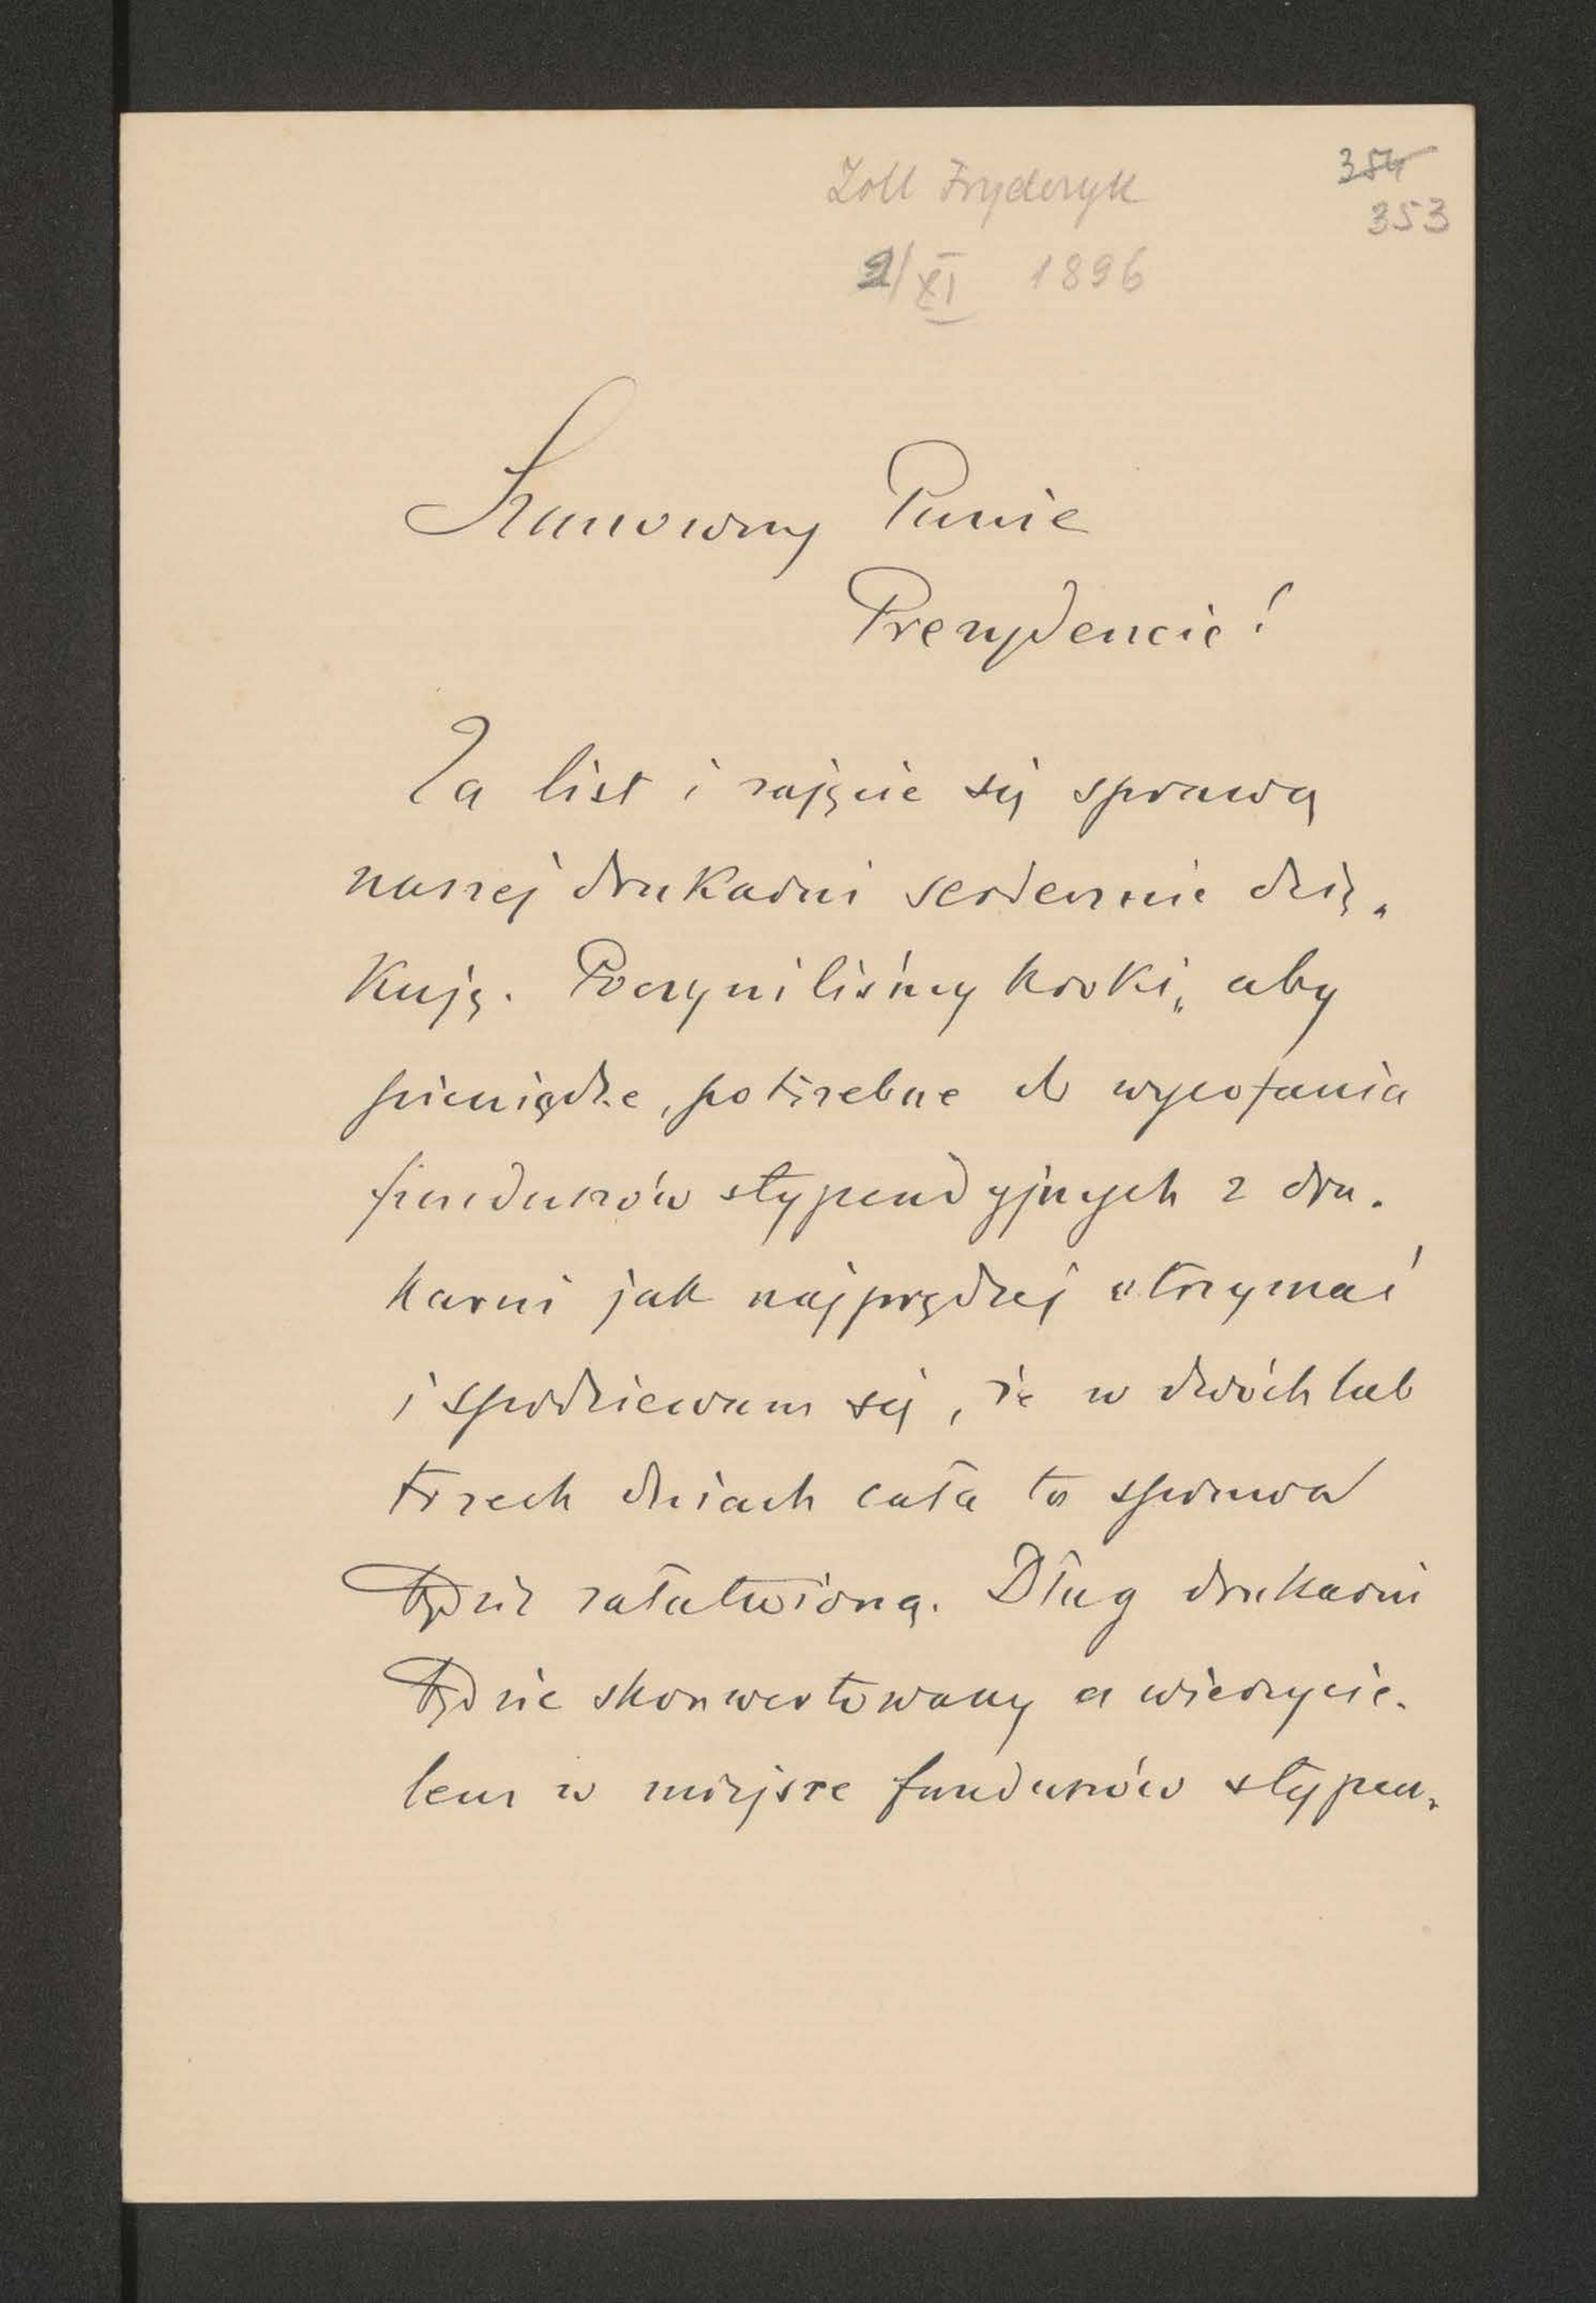 Zoll Fryderyk
354
353
2/XI 1896
Szanowny Panie
Prezydencie!
Za list i zajęcie się sprawą
naszej drukarni serdecznie dzię„
kuję. Poczyniliśmy kroki, aby
pieniądze, potrzebne do wycofania
funduszów stypendyjnych z dru.
karni jak najprędzej otrzymać
i spodziewam się, że w dwóch lub
trzech dniach cała ta sprawa
będzie załatwioną. Dług drukarni
będzie skonwertowany a wierzycie.
lem w miejsce funduszów stypen„